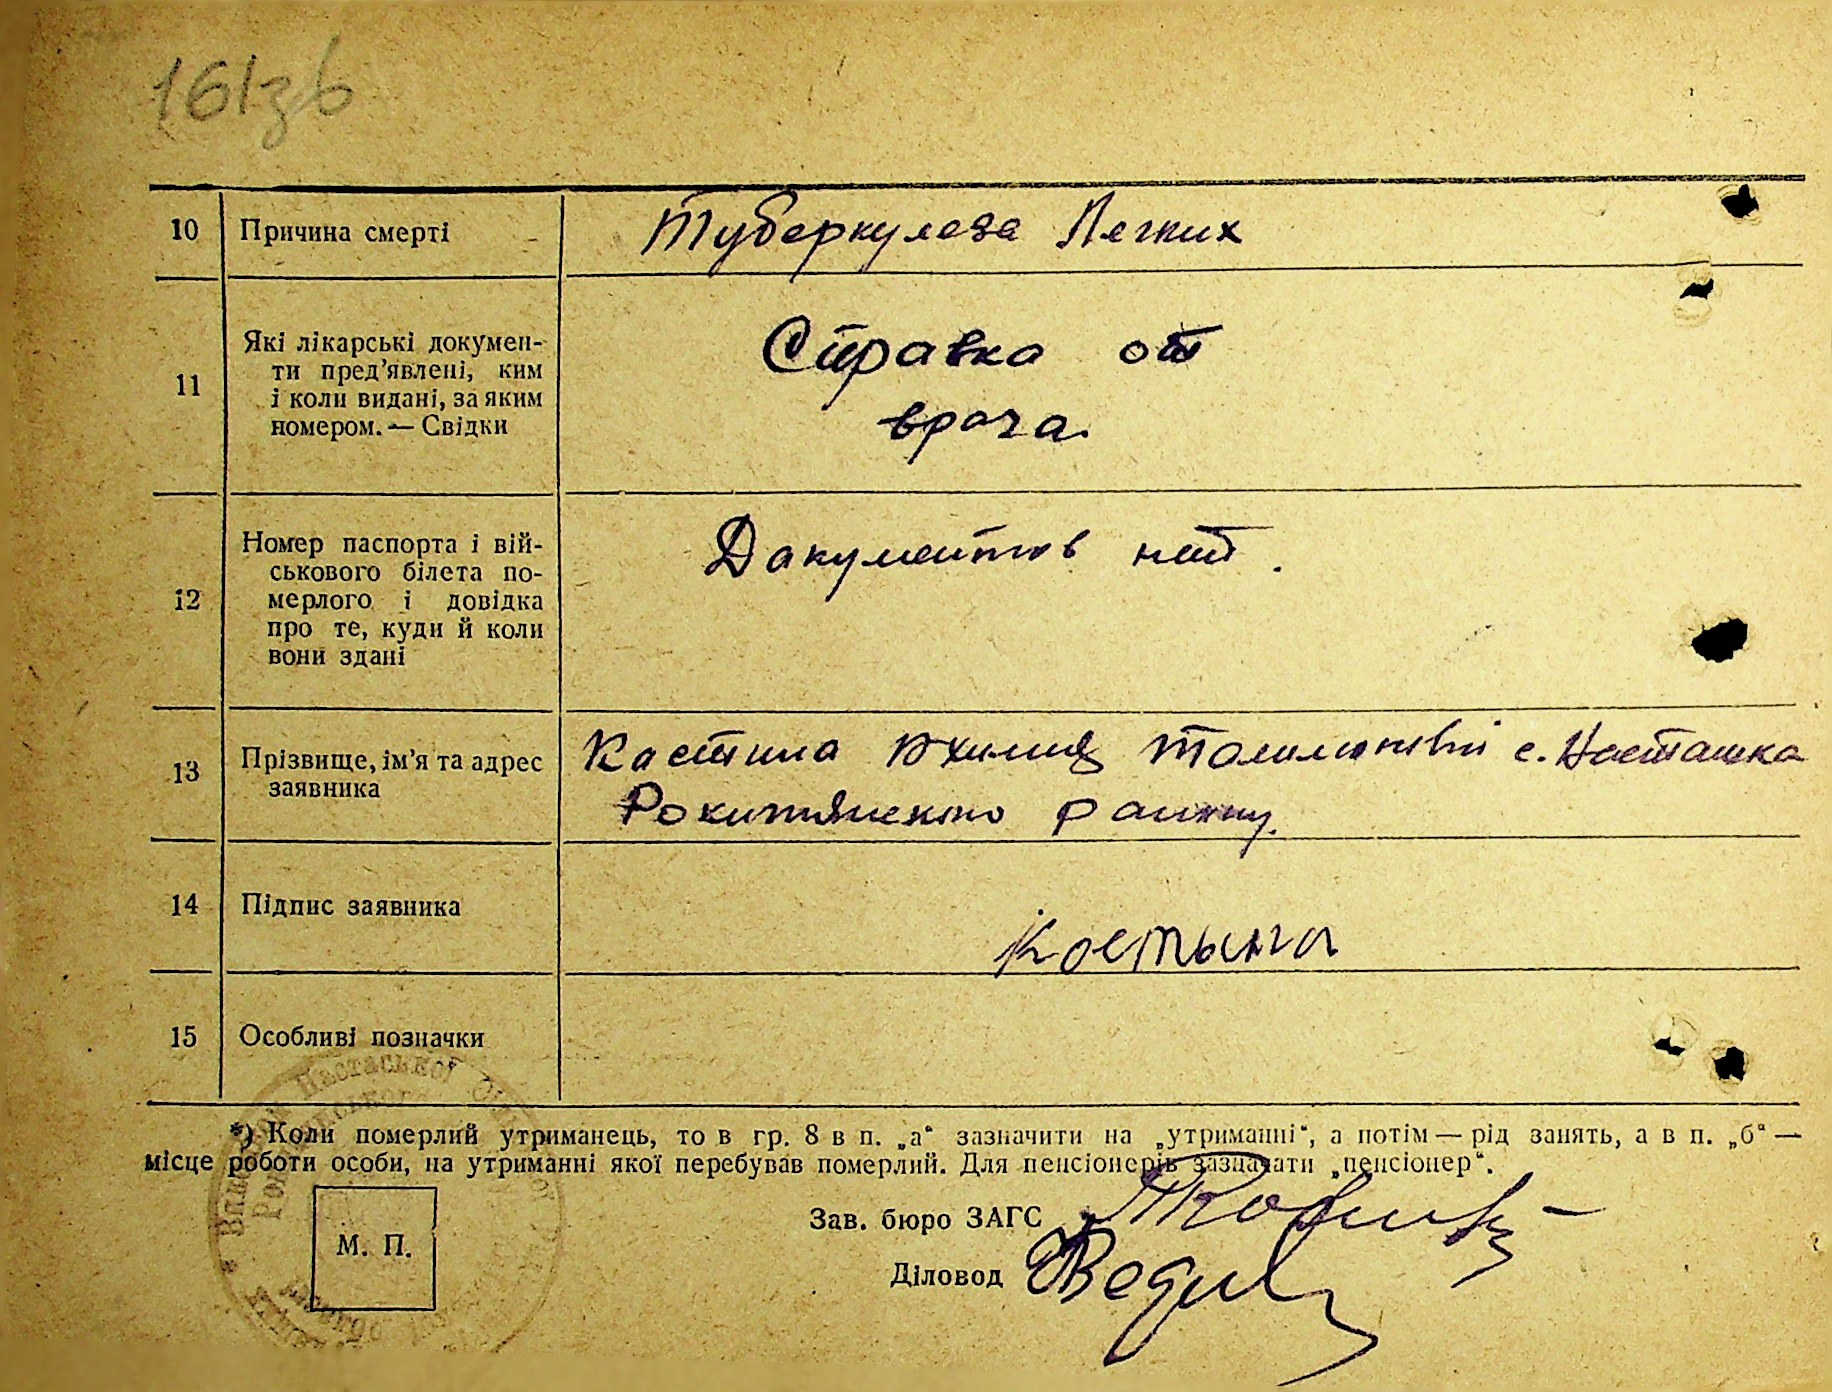 161зв
10 Причина смерті Туберкулеза Легких
11 Які лікарські докумен-
ти пред’явлені, ким
і коли видані, за яким
номером. — Свідки
Справка от
врача.
12 Номер паспорта і вій-
ськового білета по-
мерлого і довідка
про те, куди й коли
вони здані
Дакументов нет.
13 Прізвище, ім’я та адрес
заявника
Кастина с. Насташка
Рокитянского району.
14 Підпис заявника
Костына
15 Особливі позначки
*) Коли померлий утриманець, то в гр. 8 в п. „а“ зазначити на „утриманні“, а потім — рід занять, а в п. „б“ —
місце роботи особи, на утриманні якої перебував померлий. Для пенсіонерів зазначати „пенсіонер“.
Зав. бюро ЗАГС
Діловод
М. П.